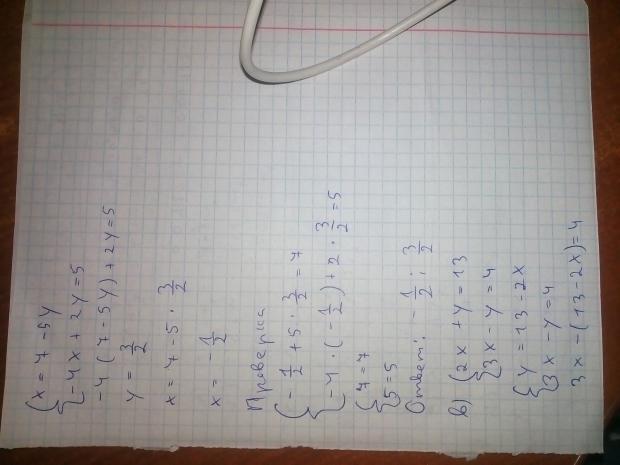 {x = 7 - 5y
{-4x + 2y = 5
-4(7 - 5y) + 2y = 5
y = 3/2
x = 7 - 5 · 3/2
x = -1/2
Проверка
{-1/2 + 5 · 3/2 = 7
{-4 · (-1/2) + 2 · 3/2 = 5
{7 = 7
{5 = 5
Ответ: -1/2; 3/2
в) {2x + y = 13
{3x - y = 4
{y = 13 - 2x
{3x - y = 4
3x - (13 - 2x) = 4